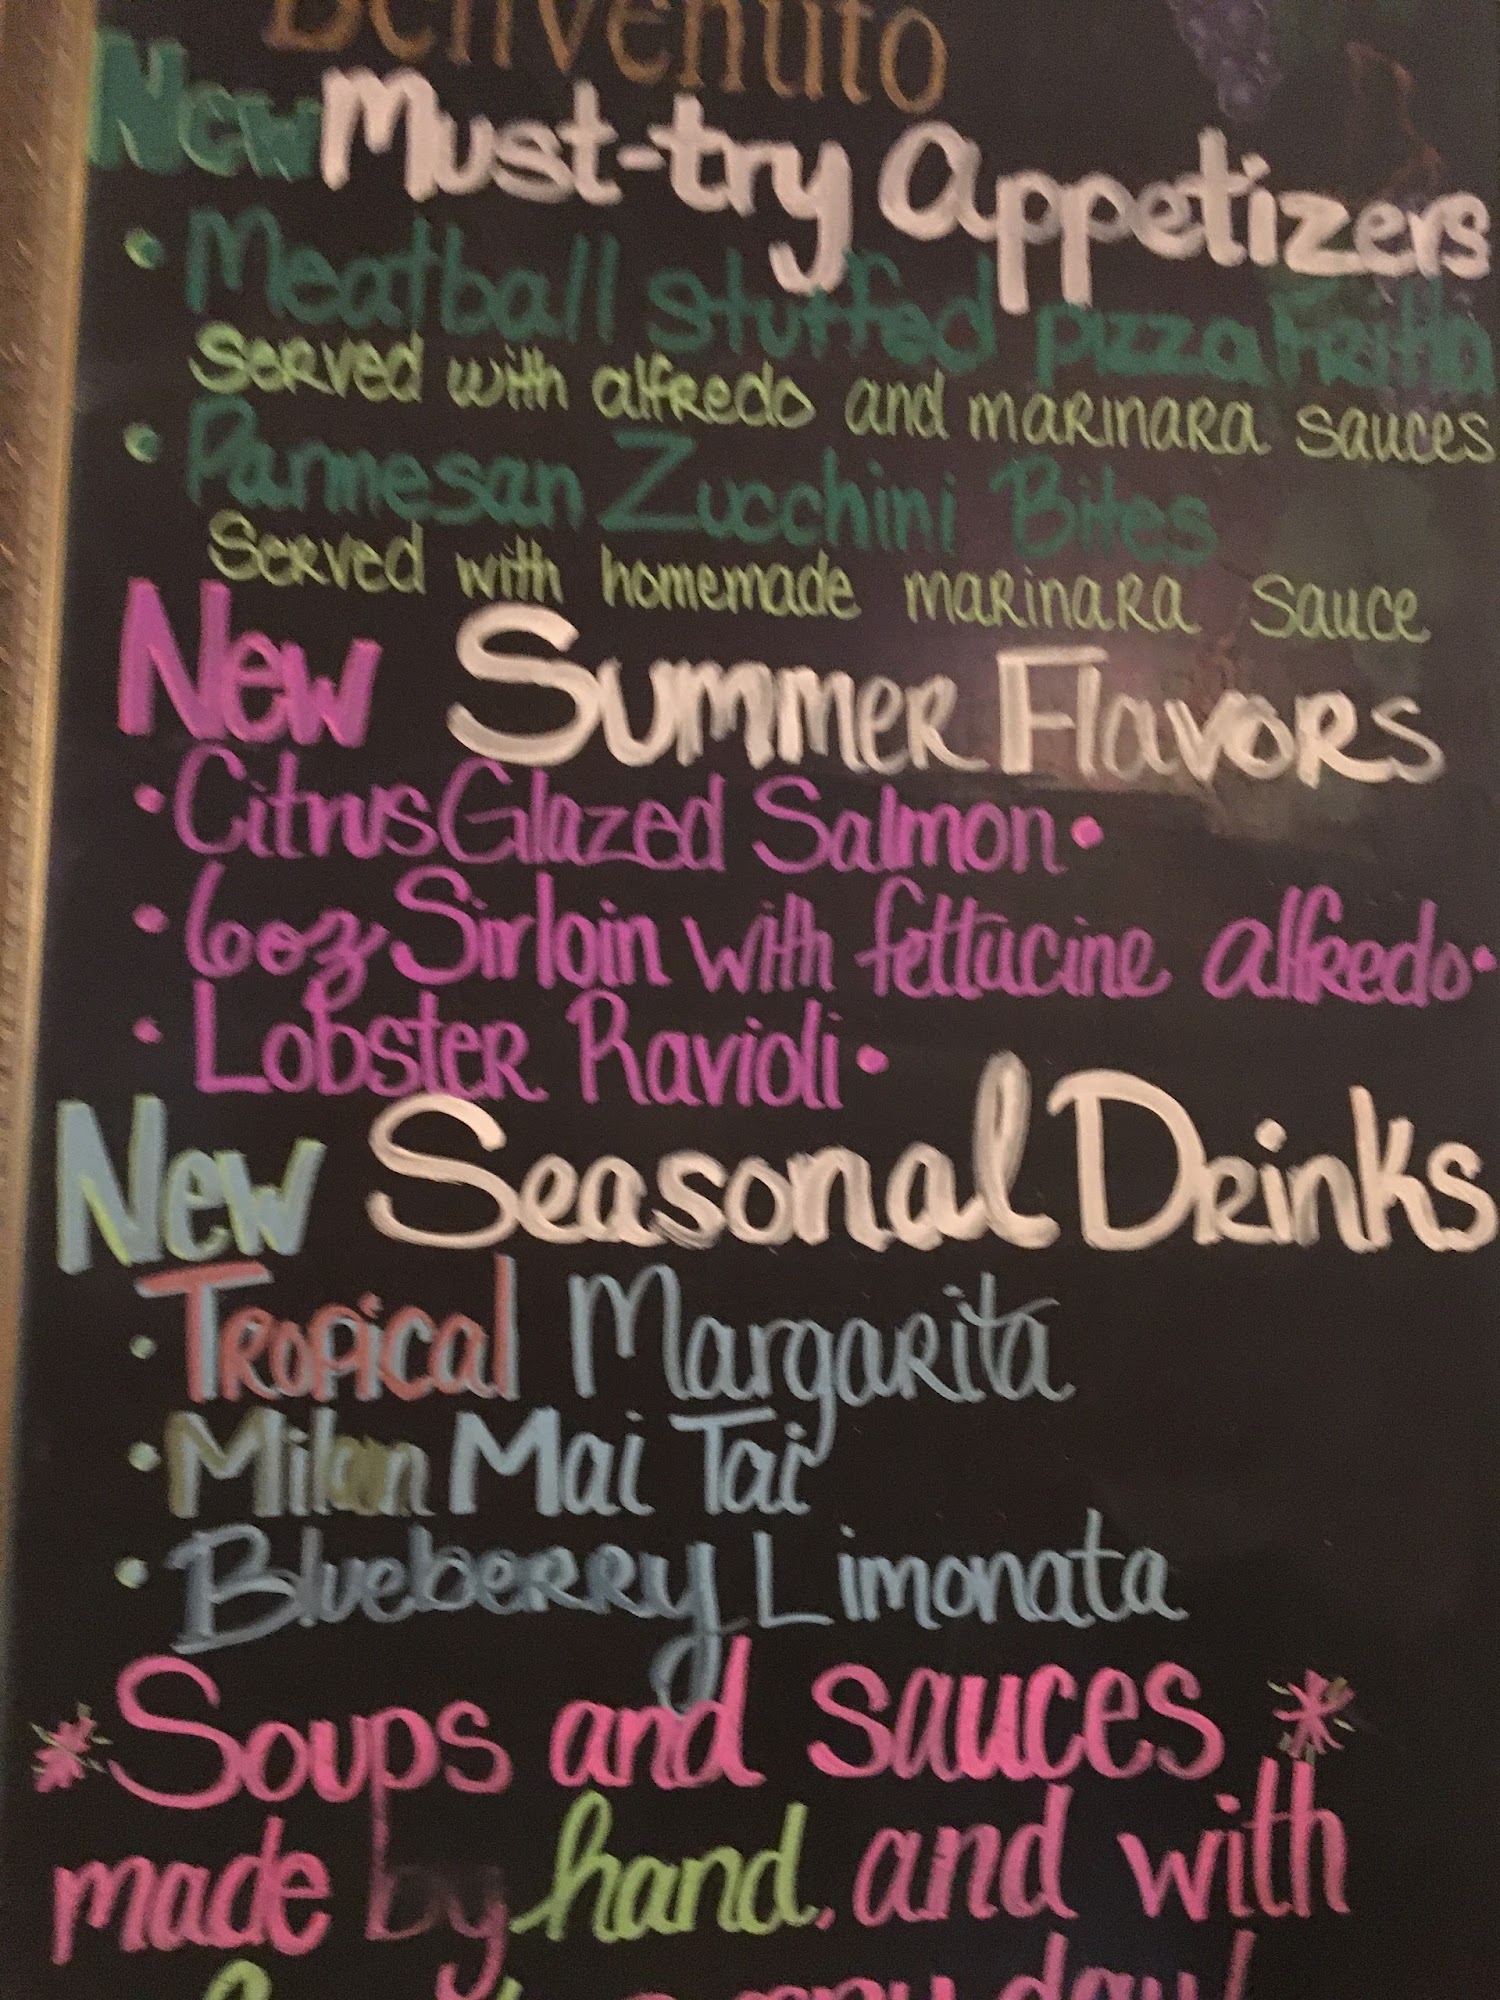 Benvenuto
New Must-try Appetizers
• Meatball stuffed pizza Fritta
Served with alfredo and marinara sauces
• Parmesan Zucchini Bites
Served with homemade marinara sauce
New Summer Flavors
• Citrus Glazed Salmon •
• 6oz Sirloin with fettucine alfredo •
• Lobster Ravioli •
New Seasonal Drinks
• Tropical Margarita
• Milan Mai Tai
• Blueberry Limonata
* Soups and sauces *
made by hand, and with
every day!